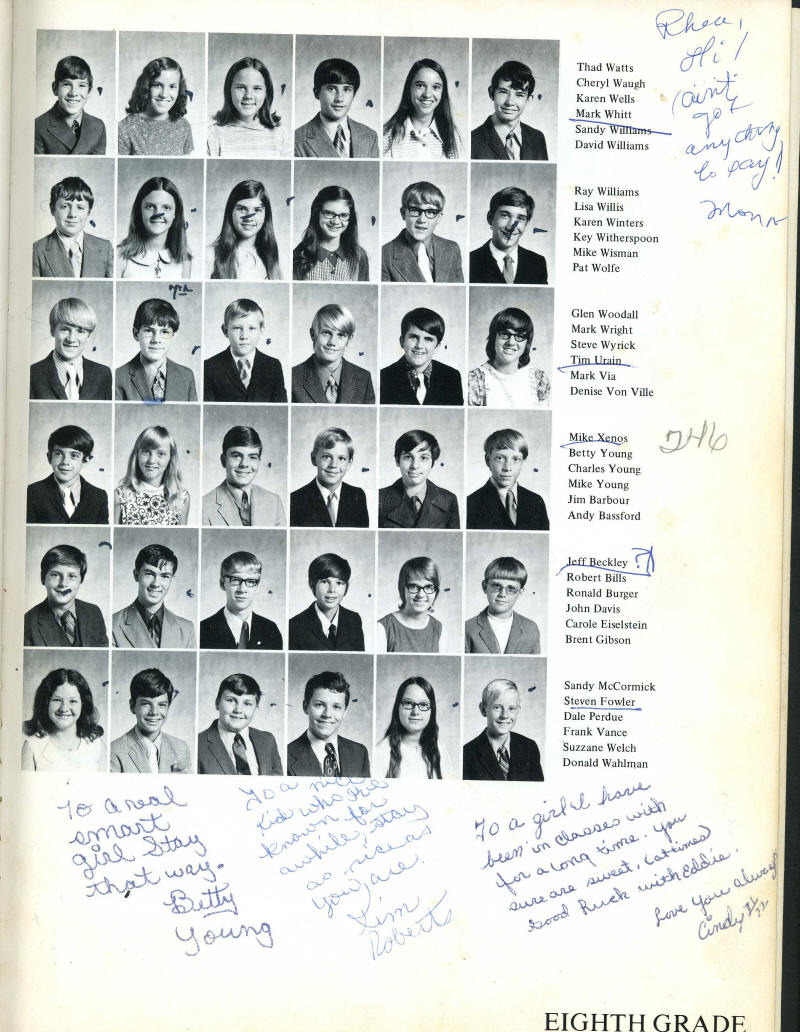 Rhea,
Hi!
ain't
got
anything
to say!
Thad Watts
Cheryl Waugh
Karen Wells
Mark Whitt
Sandy Williams
David Williams
Ray Williams
Lisa Willis
Karen Winters
Key Witherspoon
Mike Wisman
Pat Wolfe
Glen Woodall
Mark Wright
Steve Wyrick
Tim Urain
Mark Via
Denise Von Ville
Mike Xenos
Betty Young
Charles Young
Mike Young
Jim Barbour
Andy Bassford
246
Jeff Beckley
Robert Bills
Ronald Burger
John Davis
Carole Eiselstein
Brent Gibson
Sandy McCormick
Steven Fowler
Dale Perdue
Frank Vance
Suzzane Welch
Donald Wahlman
To a real
smart
girl Stay
that way.
Betty
Young
To a nice
Kid who I've
known for
awhile, stay
as nice as
you are.
Kim
Roberts
To a girl I have
been in classes with
for a long time. You
sure are sweet, (at times)
Good Luck with Eddie.
Love You always
Cindy
EIGHTH GRADE